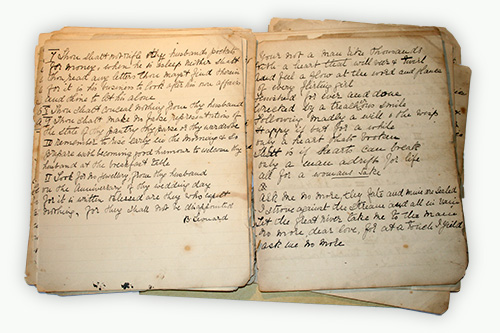 V Thou shalt not rifle thy husbands pockets
for money, when he is asleep neither shalt
thou read any letters thou mayst find therein
for it is his business to look after his own affairs
and thine to let his alone
VI Thou shalt conceal nothing from thy husband
VII Thou shalt make no false representation of
the state of thy pantry thy purse or thy wardrobe
VIII Remember to rise early in the mornings &
prepare with becoming good humour to welcome thy
husband at the breakfast table
IX Look for no jewellery from thy husband
on the anniversary of thy wedding day
for it is written Blessed are they who expect
nothing, for they shall not be disappointed
B
Your not a man like thousands
With a heart that will
feel a glow at the
of every flirting girl
for ever and done
by a smile
Following madly a will o the wisp
Happy if but for a while
Only a heart that's broken
That is if hearts can break
Only a man adrift for life
all for a womans sake
Ask me no more thy fate and mine are sealed
I strove against the stream and all in vain
Let the great river take me to the main
No more, dear love, for at a touch I yield
Ask me no more